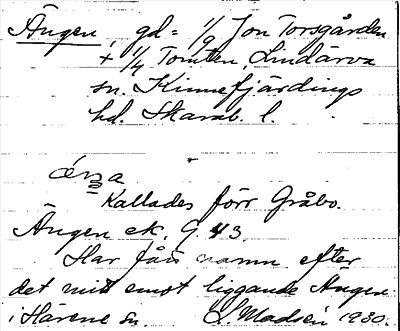 Ängen, gd = 1/9 Jon Torsgården
+ 1/4 Tomten, Lindärva
sn. Kinnefjärdings
hd. Skarab. l.
Kallades förr Gråbo.
Ängen ek. G 43.
Har fått namn efter
det mitt emot liggande Ängen
i Härene sn. Madsén 1930.